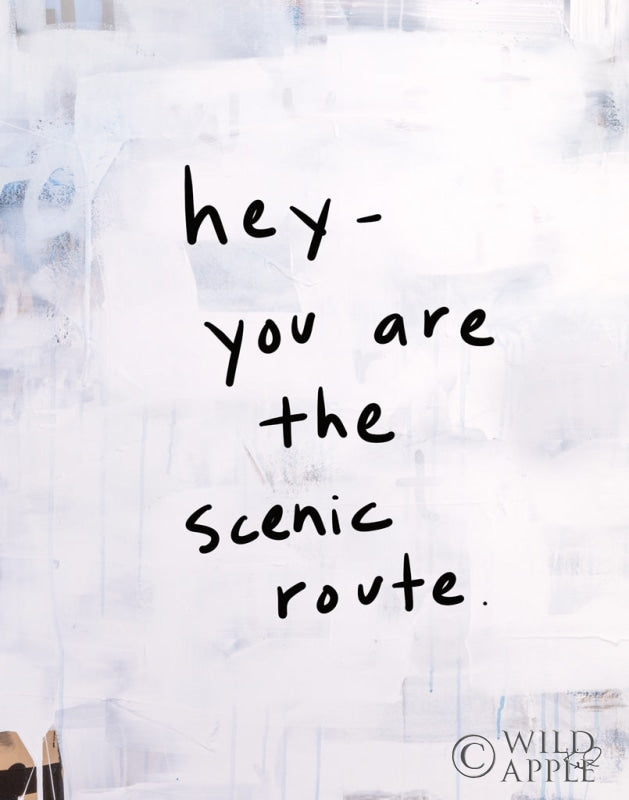 hey-
you are
the
scenic
route.
© WILD
APPLE